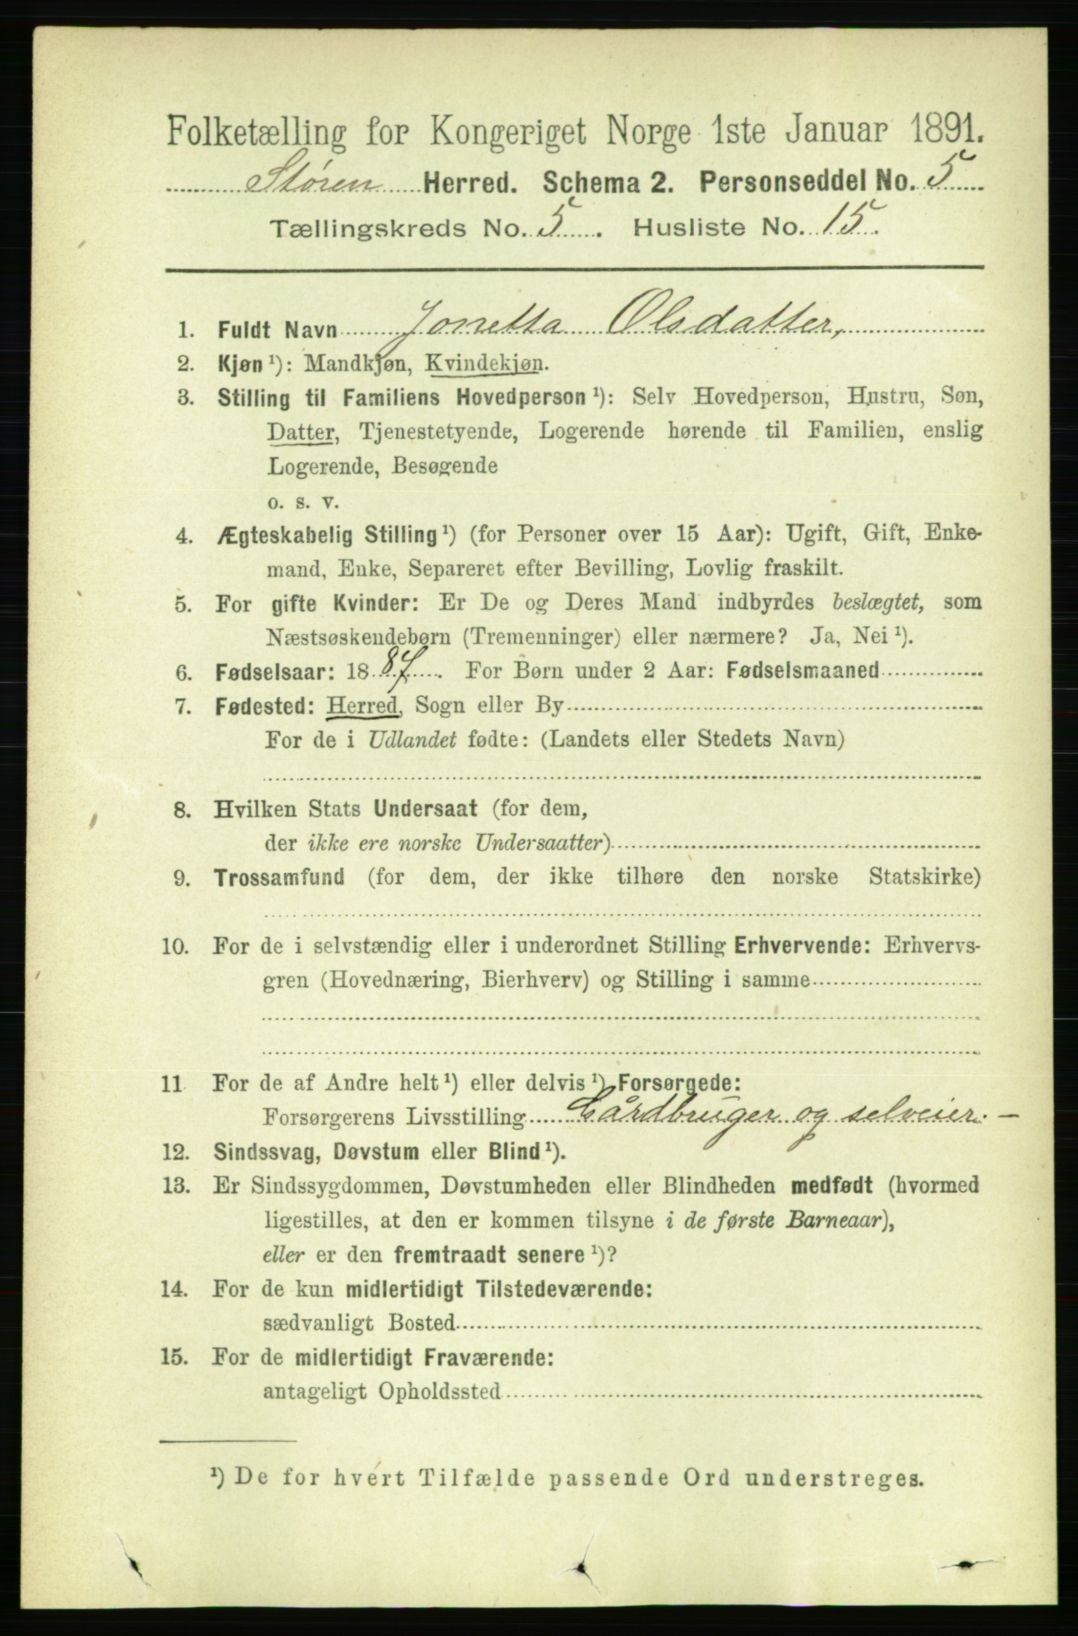 Folketælling for Kongeriget Norge 1ste Januar 1891.
Støren Herred. Schema 2. Personseddel No. 5
Tællingskreds No. 5. Husliste No. 15.
1. Fuldt Navn Jonetta Olsdatter,
2. Kjøn¹): Mandkjøn, Kvindekjøn.
3. Stilling til Familiens Hovedperson¹): Selv Hovedperson, Hustru, Søn,
Datter, Tjenestetyende, Logerende hørende til Familien, enslig
Logerende, Besøgende
o. s. v.
4. Ægteskabelig Stilling¹) (for Personer over 15 Aar): Ugift, Gift, Enke-
mand, Enke, Separeret efter Bevilling, Lovlig fraskilt.
5. For gifte Kvinder: Er De og Deres Mand indbyrdes beslægtet, som
Næstsøskendebørn (Tremenninger) eller nærmere? Ja, Nei¹).
6. Fødselsaar: 1887. For Børn under 2 Aar: Fødselsmaaned
7. Fødested: Herred, Sogn eller By
For de i Udlandet fødte: (Landets eller Stedets Navn)
8. Hvilken Stats Undersaat (for dem,
der ikke ere norske Undersaatter)
9. Trossamfund (for dem, der ikke tilhøre den norske Statskirke)
10. For de i selvstændig eller i underordnet Stilling Erhvervende: Erhvervs-
gren (Hovednæring, Bierhverv) og Stilling i samme
11 For de af Andre helt¹) eller delvis¹) Forsørgede:
Forsørgerens Livsstilling Gårdbruger og selveier. —
12. Sindssvag, Døvstum eller Blind¹).
13. Er Sindssygdommen, Døvstumheden eller Blindheden medfødt (hvormed
ligestilles, at den er kommen tilsyne i de første Barneaar),
eller er den fremtraadt senere¹)?
14. For de kun midlertidigt Tilstedeværende:
sædvanligt Bosted
15. For de midlertidigt Fraværende:
antageligt Opholdssted
¹) De for hvert Tilfælde passende Ord understreges.